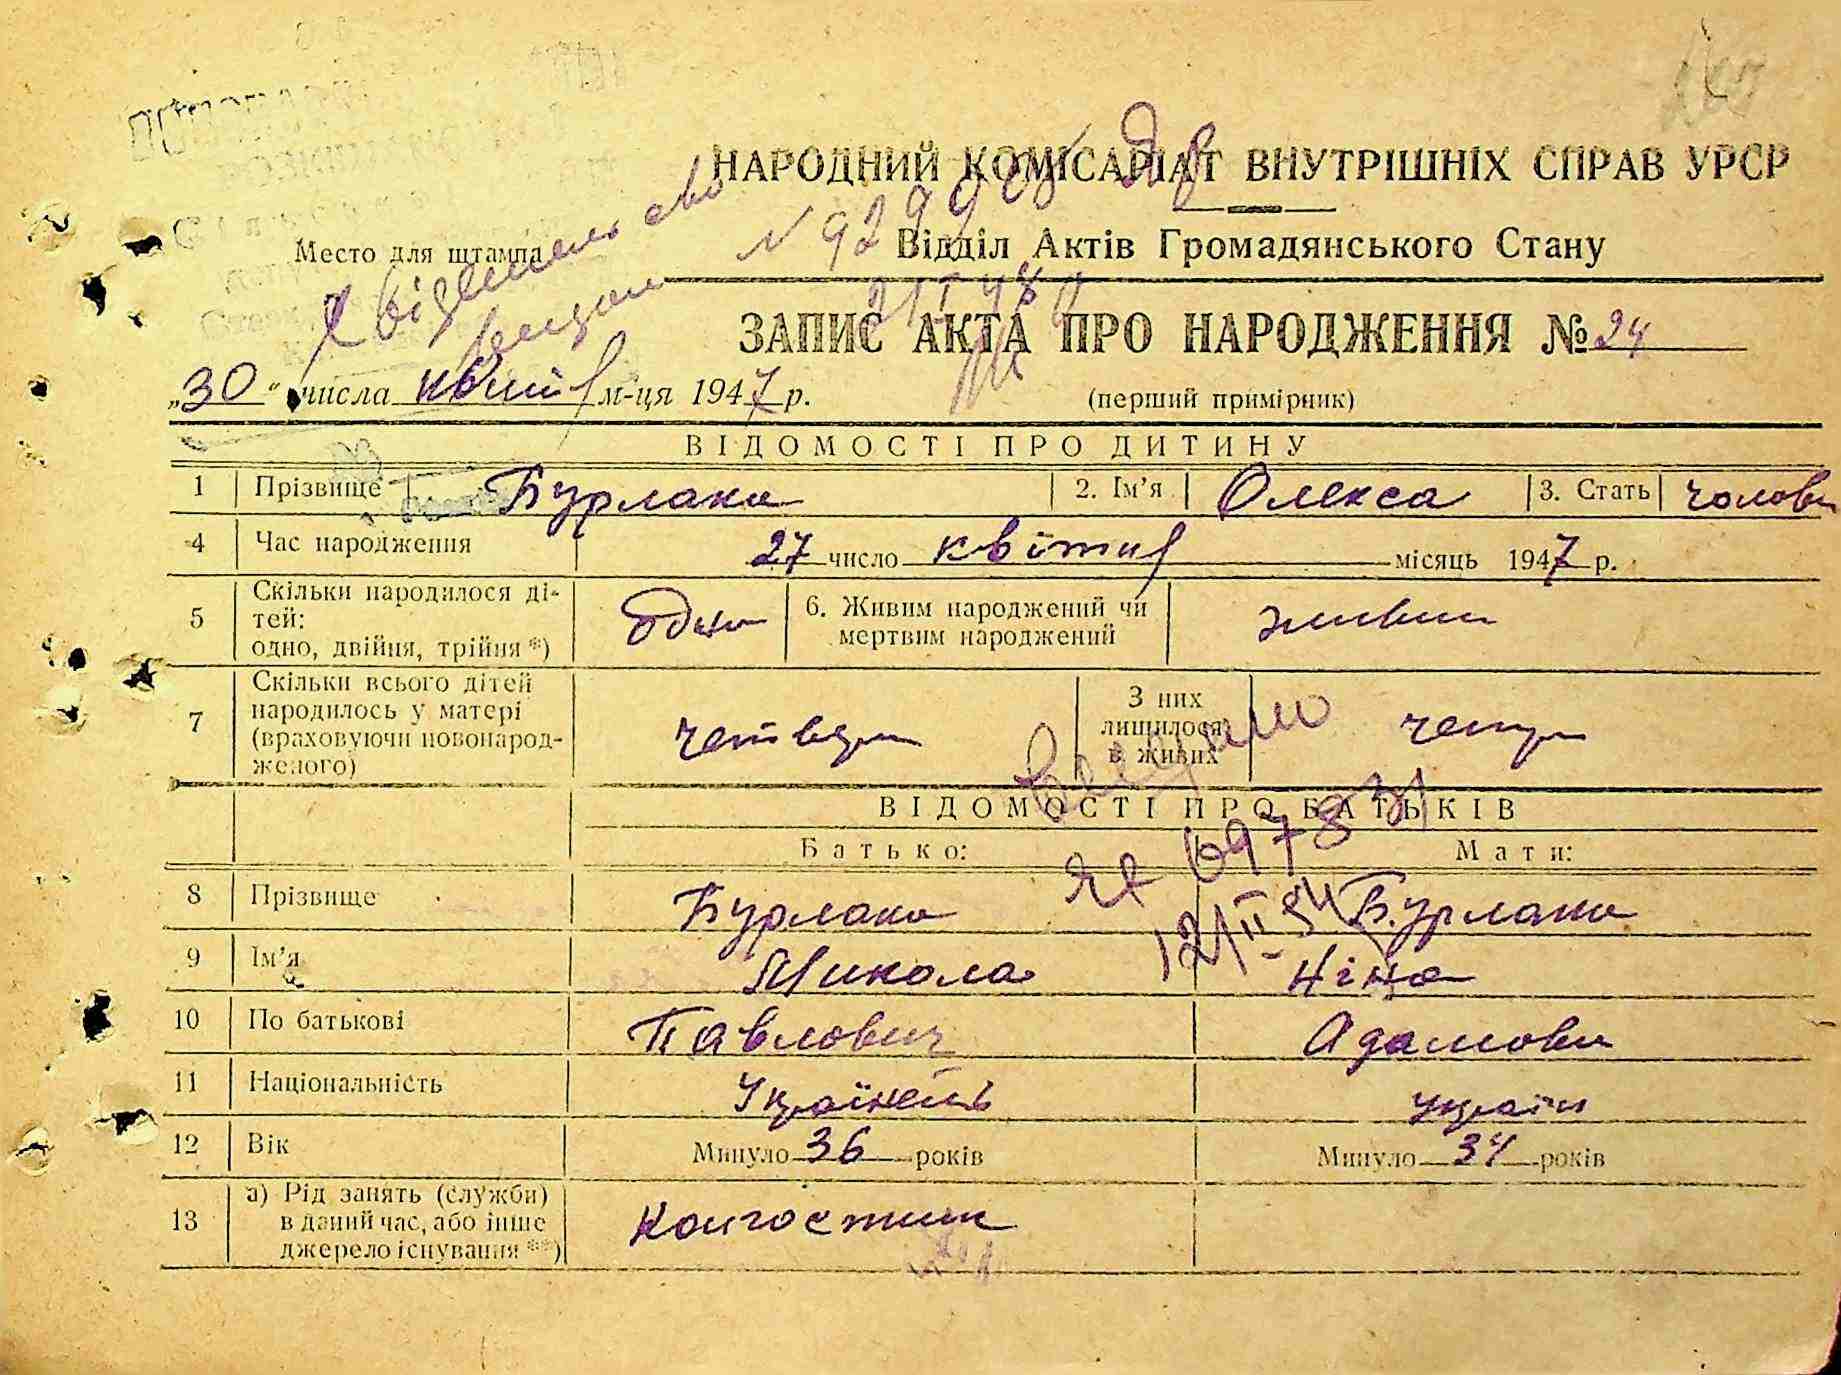 НАРОДНИЙ КОМІСАРІАТ ВНУТРІШНІХ СПРАВ УРСР
Место для штампа
Відділ Актів Громадянського Стану
N 929908
21 I 48
ЗАПИС АКТА ПРО НАРОДЖЕННЯ № 24
„30“ числа квітня м-ця 1947 р.
(перший примірник)
ВІДОМОСТІ ПРО ДИТИНУ
1 Прізвище Бурлака 2. Ім’я Олекса 3. Стать чолові
4 Час народження 27 число квітня місяць 1947 р.
5 Скільки народилося ді-
тей:
одно, двійня, трійня *) одно 6. Живим народжений чи
мертвим народжений живим
7 Скільки всього дітей
народилось у матері
(враховуючи новонарод-
женого) четверо З них
лишилося
в живих
ВІДОМОСТІ ПРО БАТЬКІВ
Батько: Мати:
8 Прізвище Бурлака Бурлака
9 Ім’я Микола Ніна
10 По батькові Павлович Адамовн
11 Національність Українець україн
12 Вік Минуло 36 років Минуло 34 років
13 а) Рід занять (служби)
в даний час, або інше
джерело існування **) Колгоспник